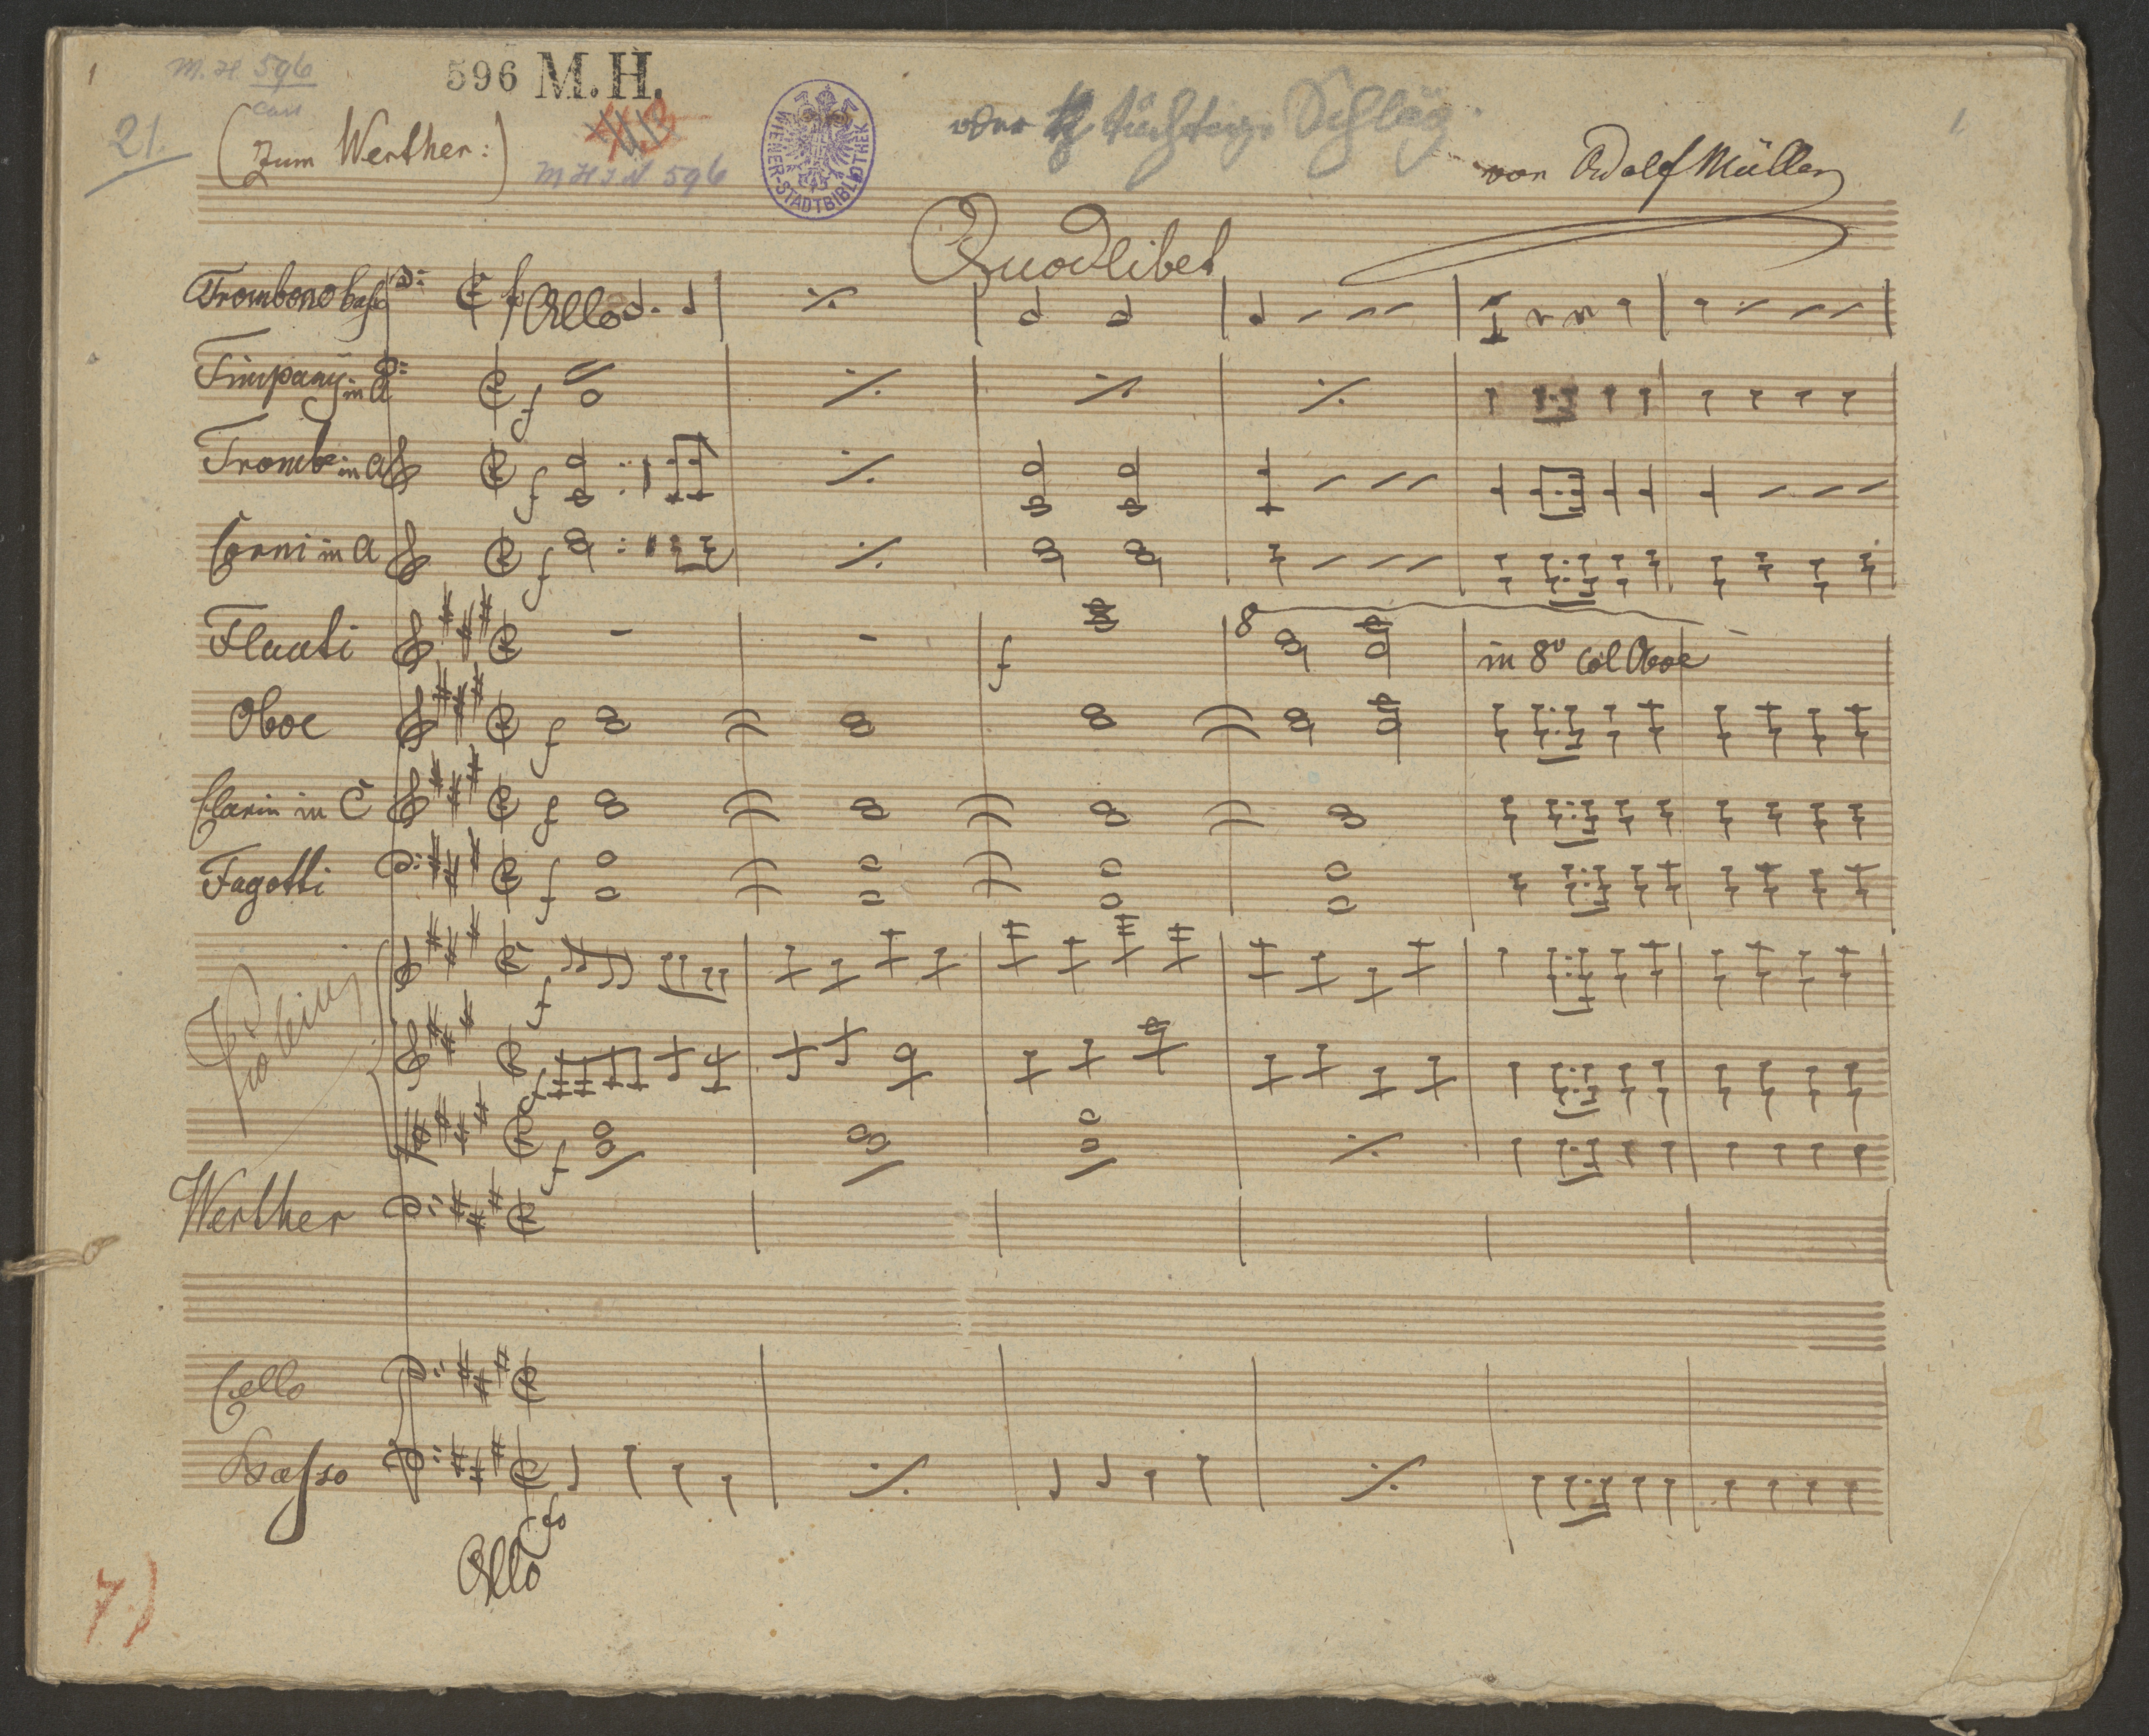 1
M. H. 596
596 M. H.
WIENER-STADTBIBLIOTHEK
oder
tüchtige Schläg
1
21.
(Zum Werther:)
M H I N 596
von Adolf Müller
Quodlibet
Trombono basso
Allo
Timpany in A
f
Trombe in A
f
Corni in A
f
Flauti
f
8
in 8º Col Oboe
Oboe
f
Clarin in C
f
Fagotti
f
Violini
f
f
f
Werther
Cello
Basso
fo
Allo
7)